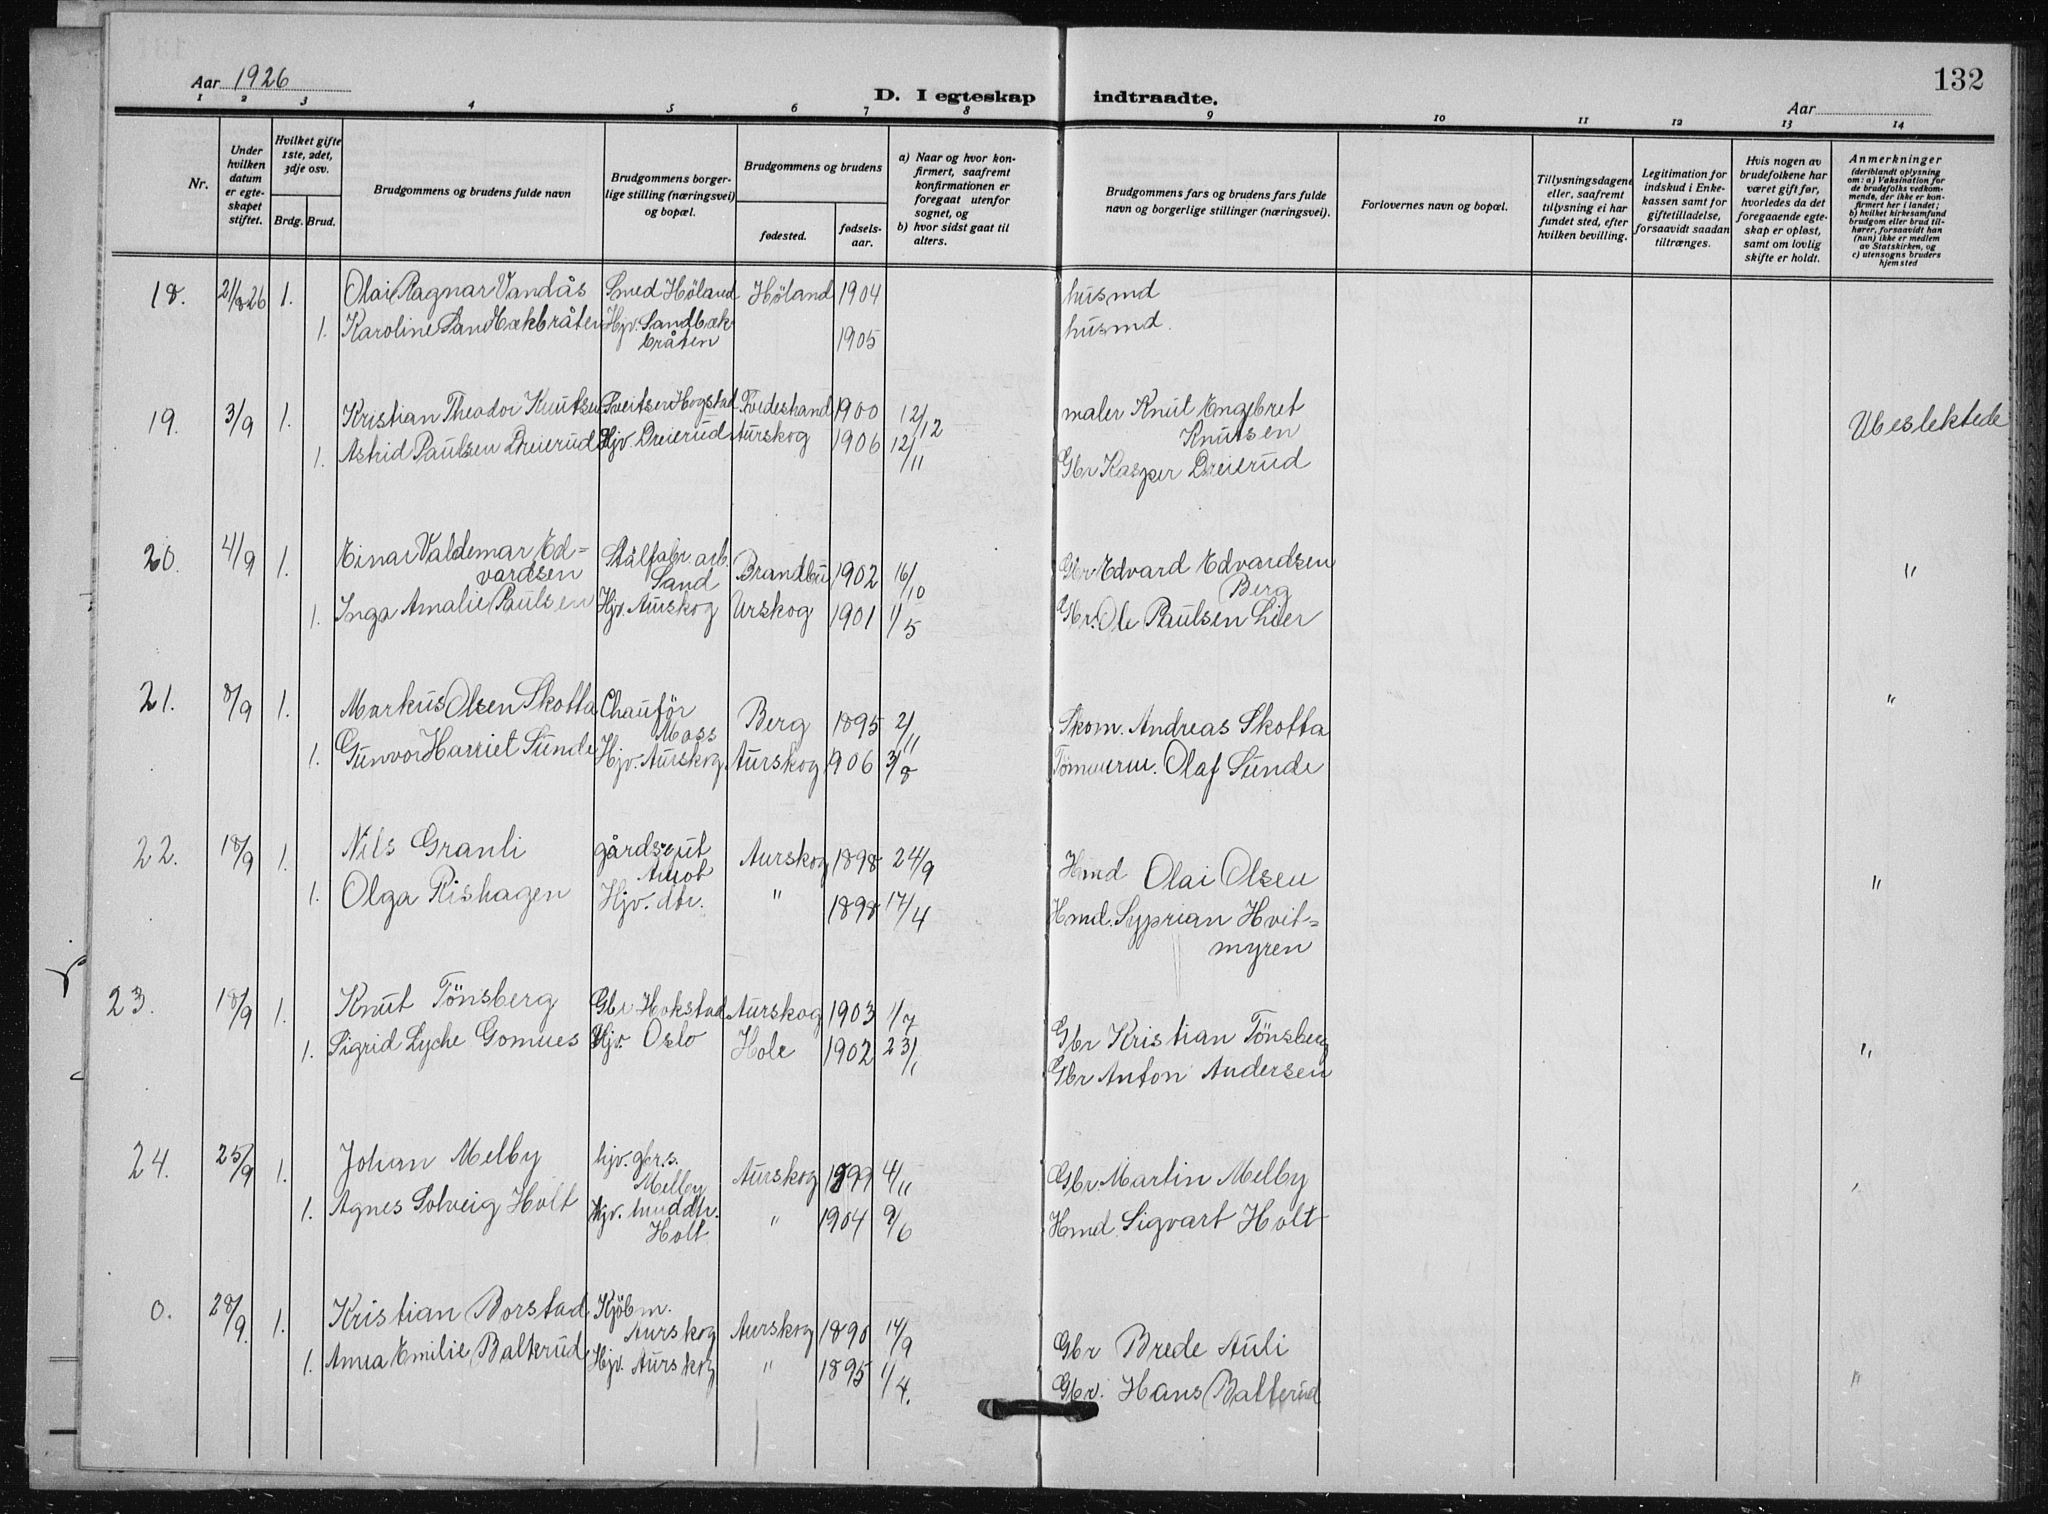 Aar 1926
D. I egteskap indtraadte.
132
Aar
1 2 3 4 5 6 7 8 9 10 11 12 13 14
Nr.
Under hvilken datum er egte-skapet stiftet.
Hvilket gifte 1ste, 2det, 3dje osv.
Brdg. Brud.
Brudgommens og brudens fulde navn
Brudgommens borger-lige stilling (næringsvei) og bopæl.
Brudgommens og brudens
fødested.
fødsels-aar.
a) Naar og hvor kon-firmert, saafremt konfirmationen er foregaat utenfor sognet, og
b) hvor sidst gaat til alters.
Brudgommens fars og brudens fars fulde navn og borgerlige stillinger (næringsvei).
Forlovernes navn og bopæl.
Tillysningsdagene eller, saafremt tillysning ei har fundet sted, efter hvilken bevilling.
Legitimation for indskud i Enke-kassen samt for giftetilladelse, forsaavidt saadan tiltrænges.
Hvis nogen av brudefolkene har været gift før, hvorledes da det foregaaende egte-skap er opløst, samt om lovlig skifte er holdt.
Anmerkninger (deriblandt oplysning om: a) Vaksination for de brudefolks vedkom-mende, der ikke er kon-firmert her i landet; b) hvilket kirkesamfund brudgom eller brud til-hører, forsaavidt han (hun) ikke er medlem av Statskirken, og c) utensogns bruders hjemsted
18. 21/8 26 1. Olai Ragnar Vandås Smed Höland Höland 1904 husmd
1. Karoline Sandbækbråten Hjv. Sandbæk bråten 1905 husmd.
19. 3/9 1. Kristian Theodor Knutsen Sveitser Hogstad Tvedestrand 1900 12/12 maler Knut Engebret Knutsen Ubeslektede
1. Astrid Paulsen Dreierud Hjv. Dreierud Aurskog 1906 12/11 Gbr Kasper Dreierud
20. 4/9 1. Einar Valdemar Ed-
vardsen Stålfabr. arb. Sand Brandbu 1902 16/10 Gbr Edvard Edvardsen Berg "
1. Inga Amalie Paulsen Hjv. Aurskog Urskog 1901 1/5 Gbr. Ole Paulsen Lier
21. 8/9 1. Markus Olsen Skotta Chauför Moss Berg 1895 2/11 Skom. Andreas Skotta "
1. Gunvor Harriet Sunde Hjv. Aurskog Aurskog 1906 3/8 Tömmerm. Olaf Sunde
22. 18/9 1. Nils Granli gårdsgut Aurskog 1898 24/9 Hmd Olai Olsen "
1. Olga Rishagen Hjv. dtr. " 1898 17/4 Hmd. Syprian Hvit-
myren
23. 18/9 1. Knut Tönsberg Gbr Hokstad Aurskog 1903 1/7 Gbr Kristian Tönsberg "
1. Sigrid Lyche Gomnes Hjv. Oslo Hole 1902 23/11 Gbr Anton Andersen
24. 25/9 1. Johan Melby hjv. gbr. s. Melby Aurskog 1899 4/11 Gbr. Martin Melby
1. Agnes Solveig Holt Hjv. hmddtr. Holt " 1904 9/6 Hmd. Sigvart Holt
0. 28/9. 1. Kristian Borstad Kjöbm. Aurskog Aurskog 1890 14/9 Gbr Brede Auli
1. Anna Emilie Balterud Hjv. Aurskog " 1895 1/4. Gbr. Hans Balterud "